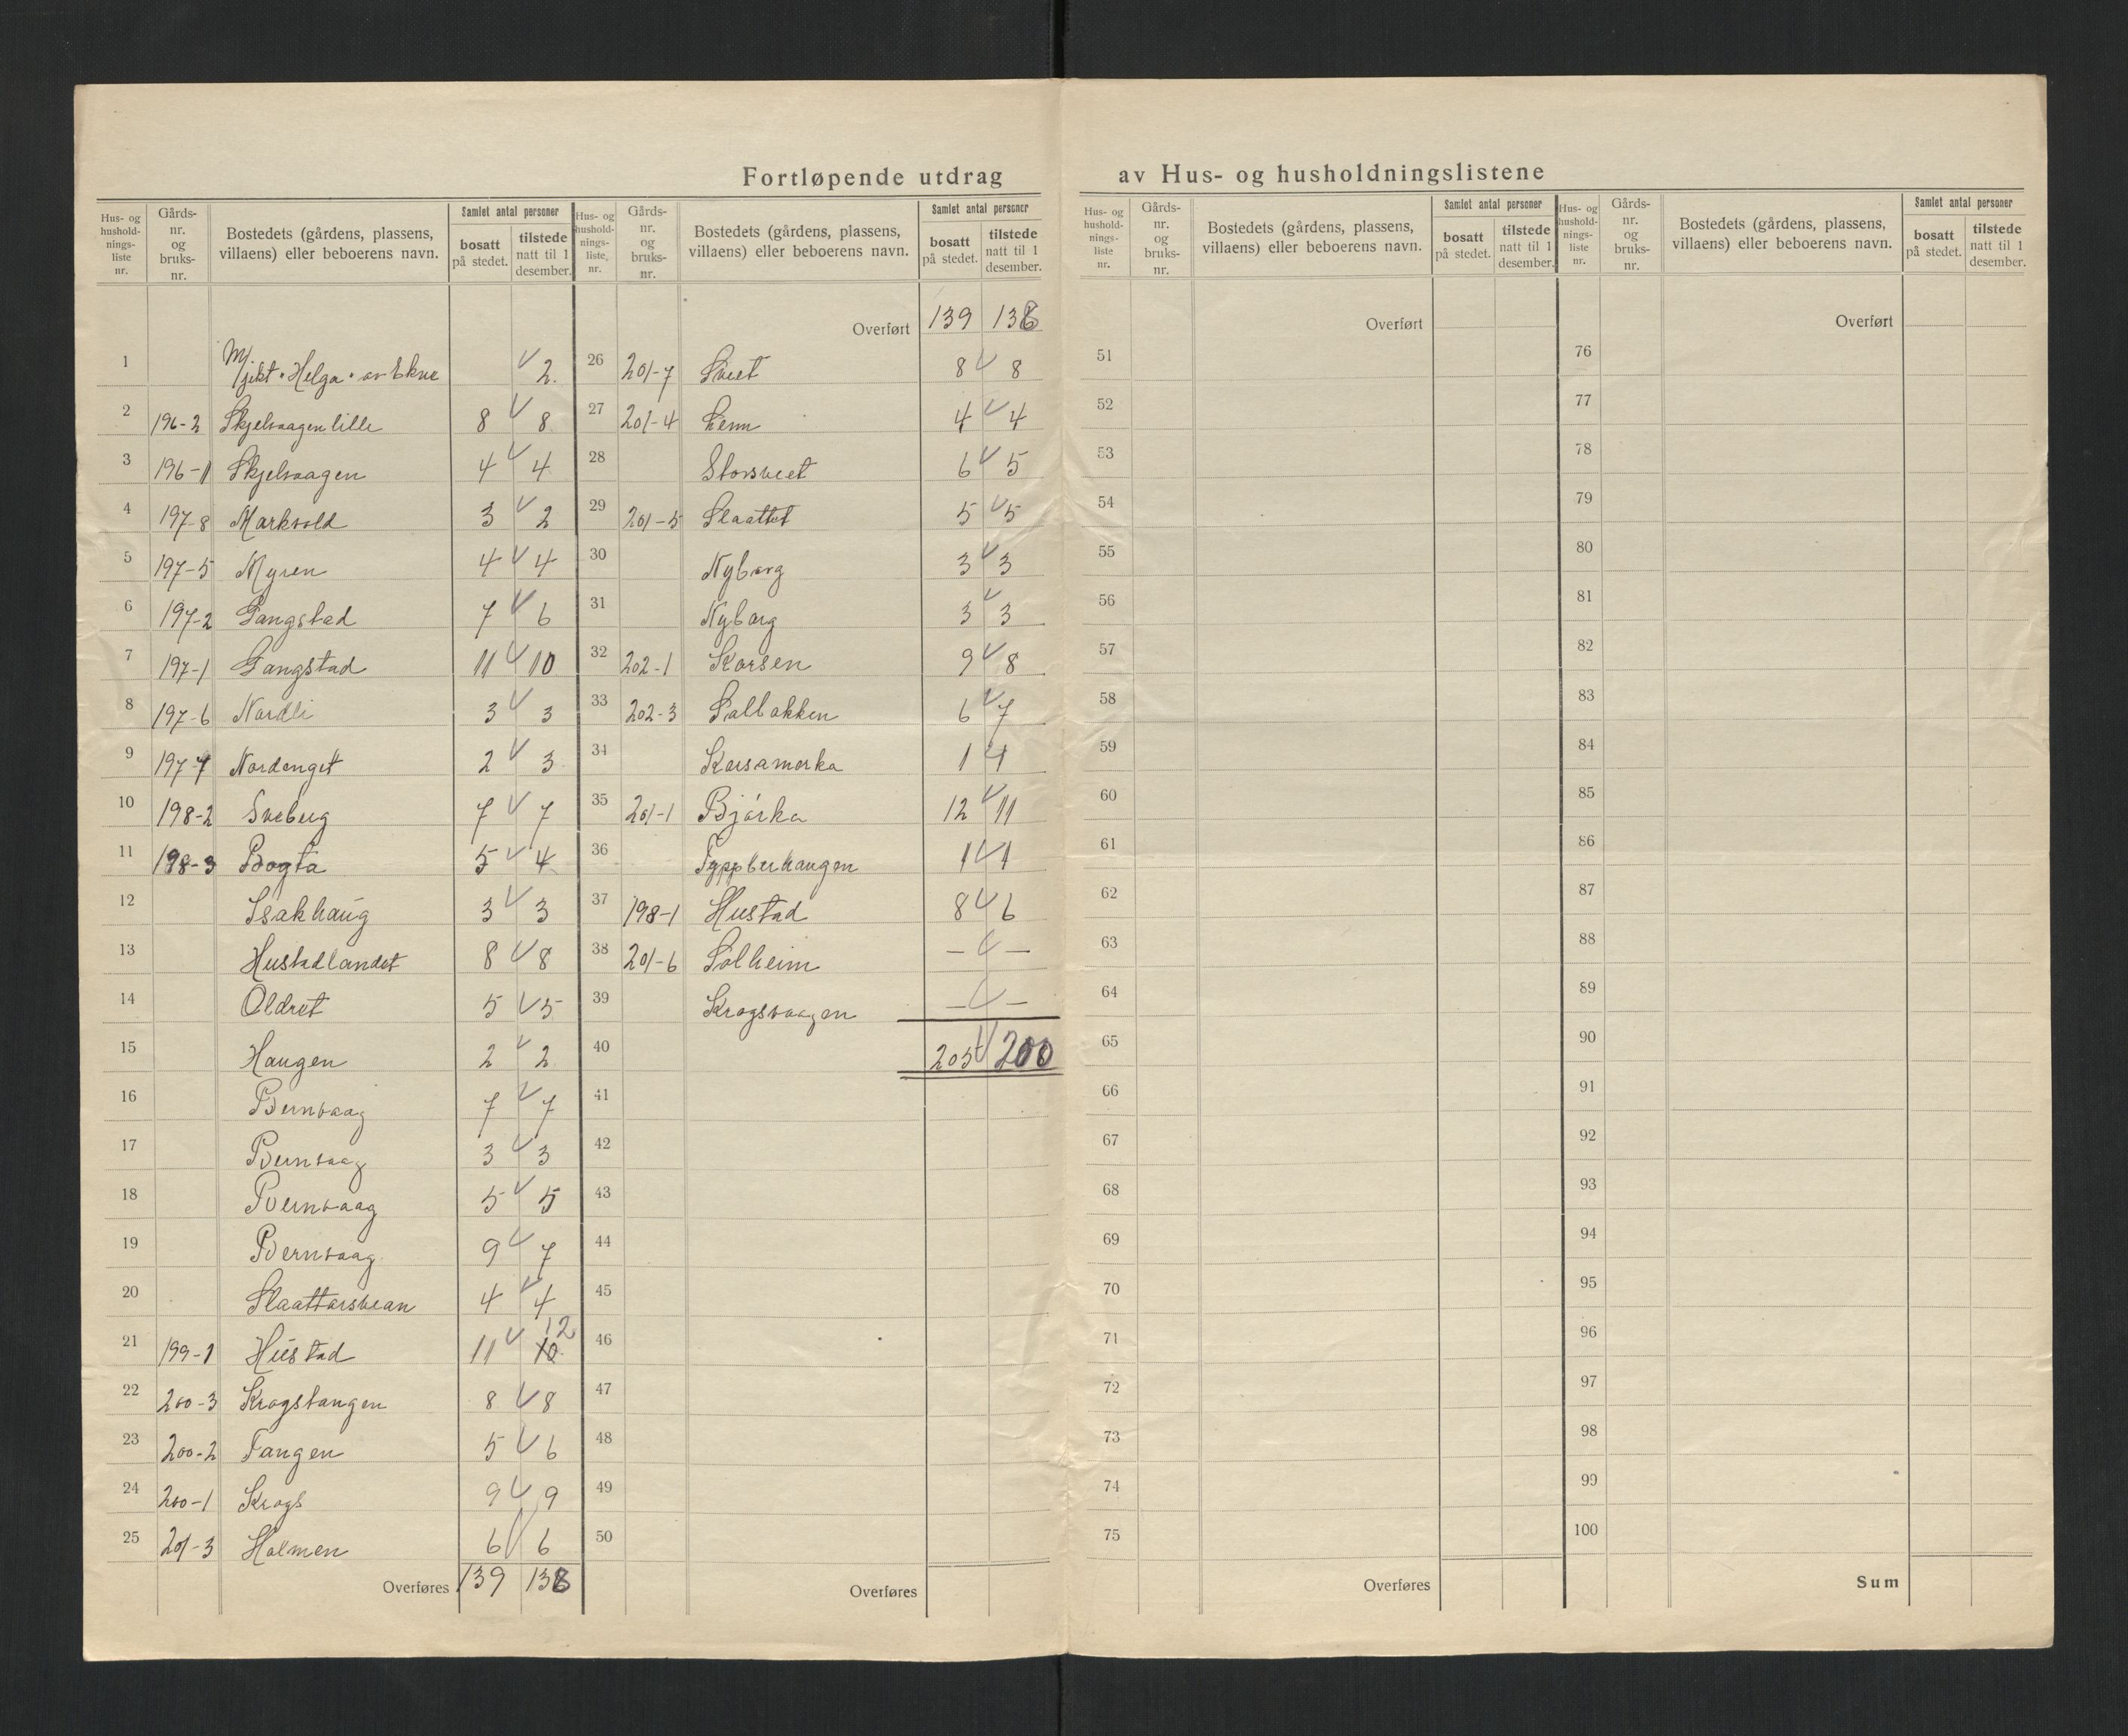 Fortløpende utdrag av Hus- og husholdningslistene
Hus- og hushold-nings-liste nr. Gårds-nr. og bruks-nr. Bostedets (gårdens, plassens, villaens) eller beboerens navn. Samlet antal personer bosatt på stedet. tilstede natt til 1 desember.
1 M/jekt "Helga" av Ekne 2
2 196-2 Skjelvaagen lille 8 8
3 196-1 Skjelvaagen 4 4
4 197-8 Markvold 3 2
5 197-5 Myren 4 4
6 197-2 Gangstad 7 6
7 197-1 Gangstad 11 10
8 197-6 Nordli 3 3
9 197-7 Nordenget 2 3
10 198-2 Sveberg 7 7
11 198-3 Bogta 5 4
12 Isakhaug 3 3
13 Hustadlandet 8 8
14 Oldret 5 5
15 Haugen 2 2
16 Bernvaag 7 7
17 Bernvaag 3 3
18 Bernvaag 5 5
19 Bernvaag 9 7
20 Slaattarsvean 4 4
21 199-1 Hustad 11 10 12
22 200-3 Krogstangen 8 8
23 200-2 Tangen 5 6
24 200-1 Krogs 9 9
25 201-3 Holmen 6 6
Overføres 139 138
Hus- og hushold-nings-liste, nr. Gårds-nr. og bruks-nr. Bostedets (gårdens, plassens, villaens) eller beboerens navn. Samlet antal personer bosatt på stedet. tilstede natt til 1 desember.
Overført 139 138
26 201-7 Sveet 8 8
27 201-4 4 4
28 Storsveet 6 5
29 201-5 Slaattet 5 5
30 Nyborg 3 3
31 Nyborg 3 3
32 202-1 Korsen 9 8
33 202-3 Solbakken 6 7
34 Korsamarka 1 1
35 201-1 Bjørka 12 11
36 1 1
37 198-1 Hustad 8 6
38 201-6 Solheim — —
39 Krogsvaagen — —
40 205 200
41
42
43
44
45
46
47
48
49
50
Overføres
Hus- og hushold-nings-liste nr. Gårds-nr. og bruks-nr. Bostedets (gårdens, plassens, villaens) eller beboerens navn. Samlet antal personer bosatt på stedet. tilstede natt til 1 desember.
Overført
51
52
53
54
55
56
57
58
59
60
61
62
63
64
65
66
67
68
69
70
71
72
73
74
75
Overføres
Hus- og hushold-nings-liste nr. Gårds-nr. og bruks-nr. Bostedets (gårdens, plassens, villaens) eller beboerens navn. Samlet antal personer bosatt på stedet. tilstede natt til 1 desember.
Overført
76
77
78
79
80
81
82
83
84
85
86
87
88
89
90
91
92
93
94
95
96
97
98
99
100
Sum